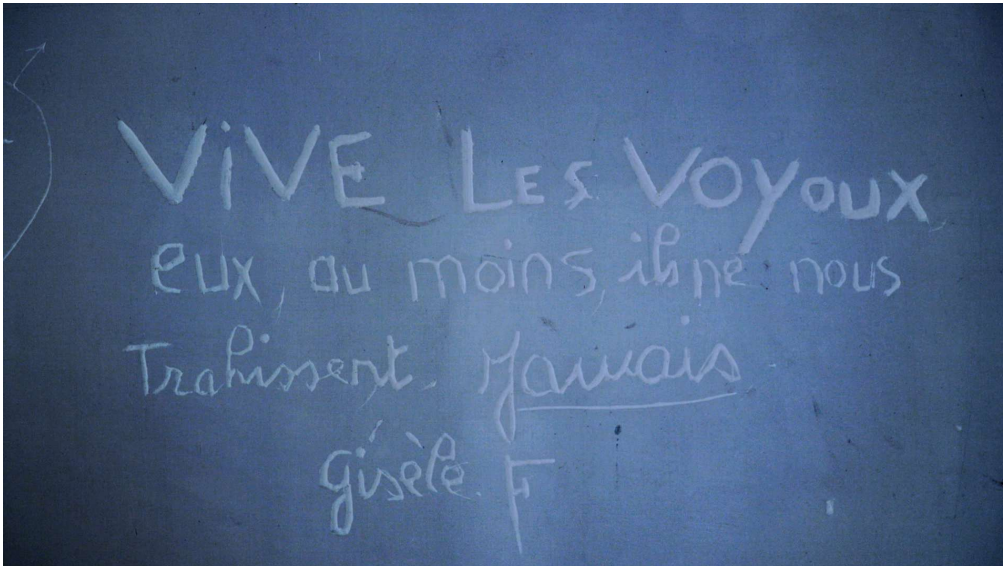 ViVE LES VOYOUX
eux, au moins, ils ne nous
Trahissent. Jamais
Gisèle. F